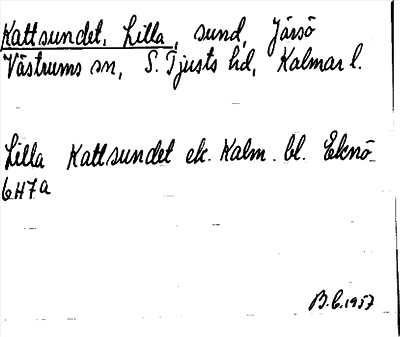 Kattsundet, Lilla, sund, Järsö
Västrums sn, S. Tjusts hd, Kalmar l.
Lilla Kattsundet ek. Kalm. bl. Eknö
6H7a
B.C. 1957